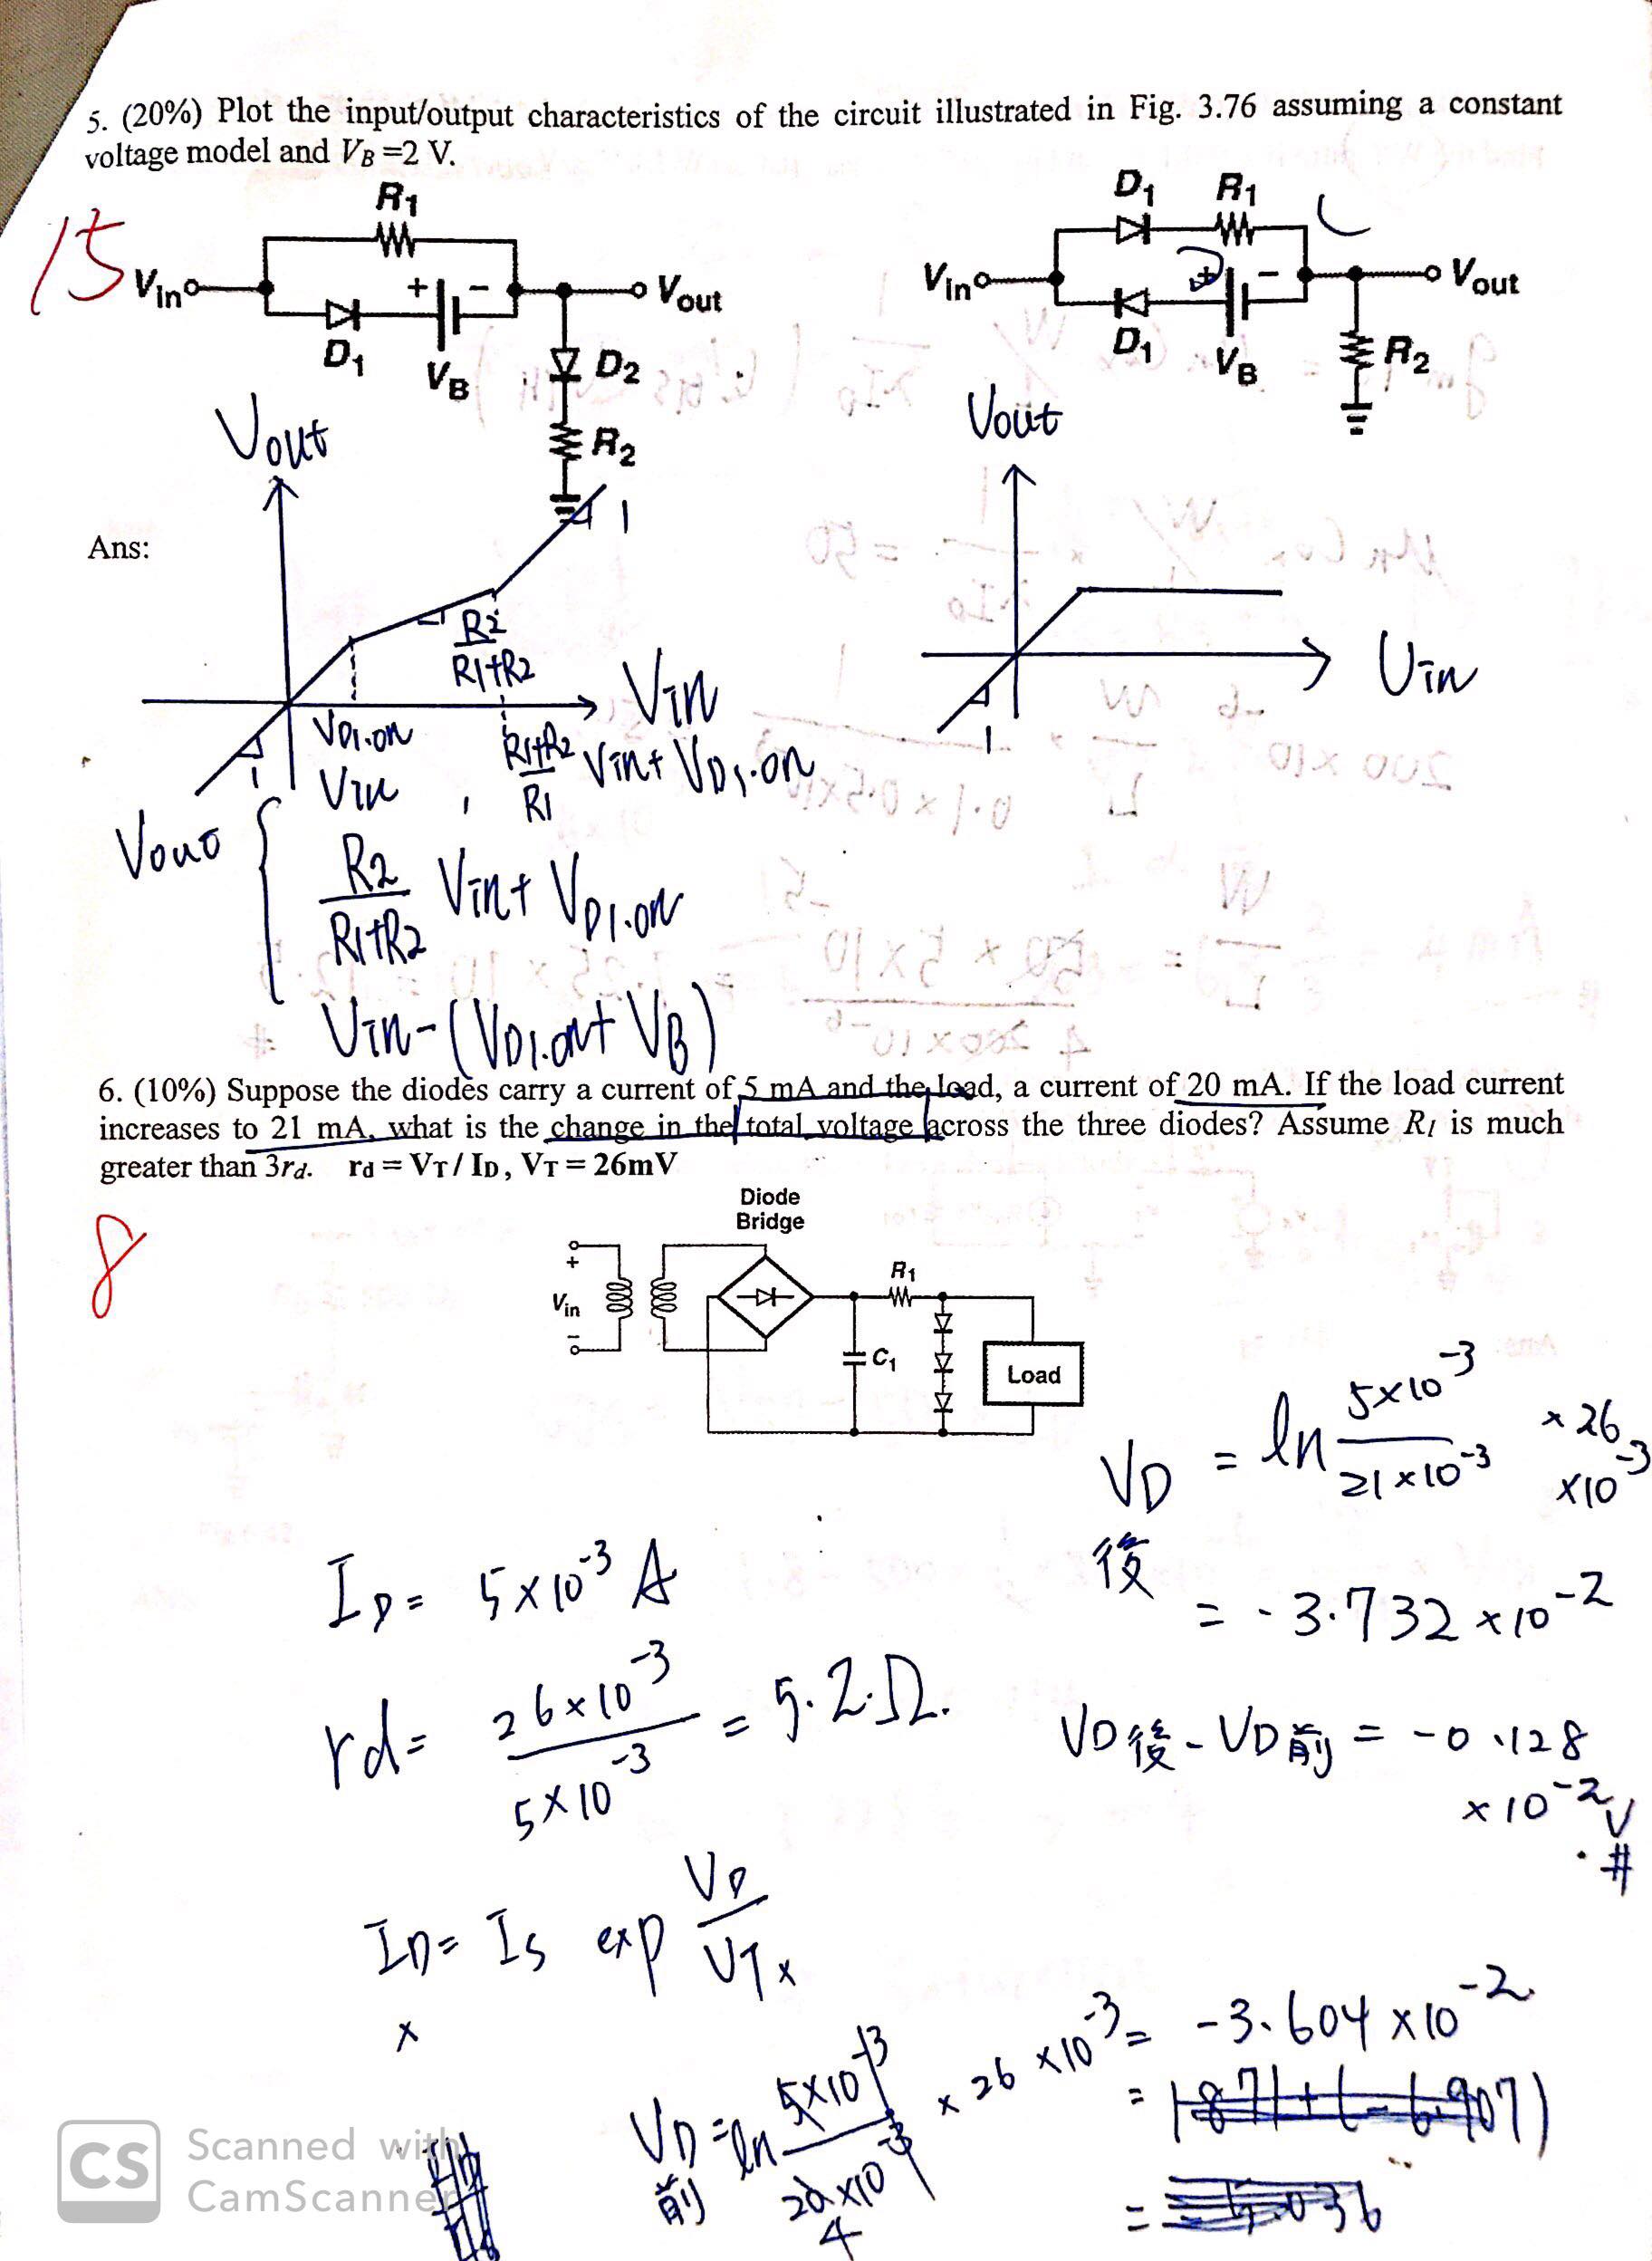 5. (20%) Plot the input/output characteristics of the circuit illustrated in Fig. 3.76 assuming a constant
voltage model and VB =2 V.
15
R1
Vin
+ −
Vout
D1
VB
D2
R2
D1 R1
Vin
+ −
Vout
D1
VB
R2
Vout
Vout
Ans:
1
R2
R1+R2
Vin
VD1.on
R1+R2
R1
Vin+ VD1.on
1
Vin
1
Vout
Vin ,
R2
R1+R2
Vin+ VD1.on
Vin-(VD1.on+ VB)
6. (10%) Suppose the diodes carry a current of 5 mA and the load, a current of 20 mA. If the load current
increases to 21 mA, what is the change in the total voltage across the three diodes? Assume R1 is much
greater than 3rd. rd = VT / ID , VT = 26mV
8
Diode
Bridge
+
Vin
−
R1
C1
Load
VD後 = ln 5×10-3 / 21×10-3 ×26 ×10-3
= -3.732 ×10-2
ID= 5×10-3 A
rd= 26×10-3 / 5×10-3 = 5.2Ω.
VD後 - VD前 = -0.128
×10-2 V
#
ID= IS exp VD / VT ×
×
VD前 = ln 5×10-3 / 20×10-3 × 26 ×10-3 = -3.604 ×10-2
4
CS
Scanned with
CamScanner